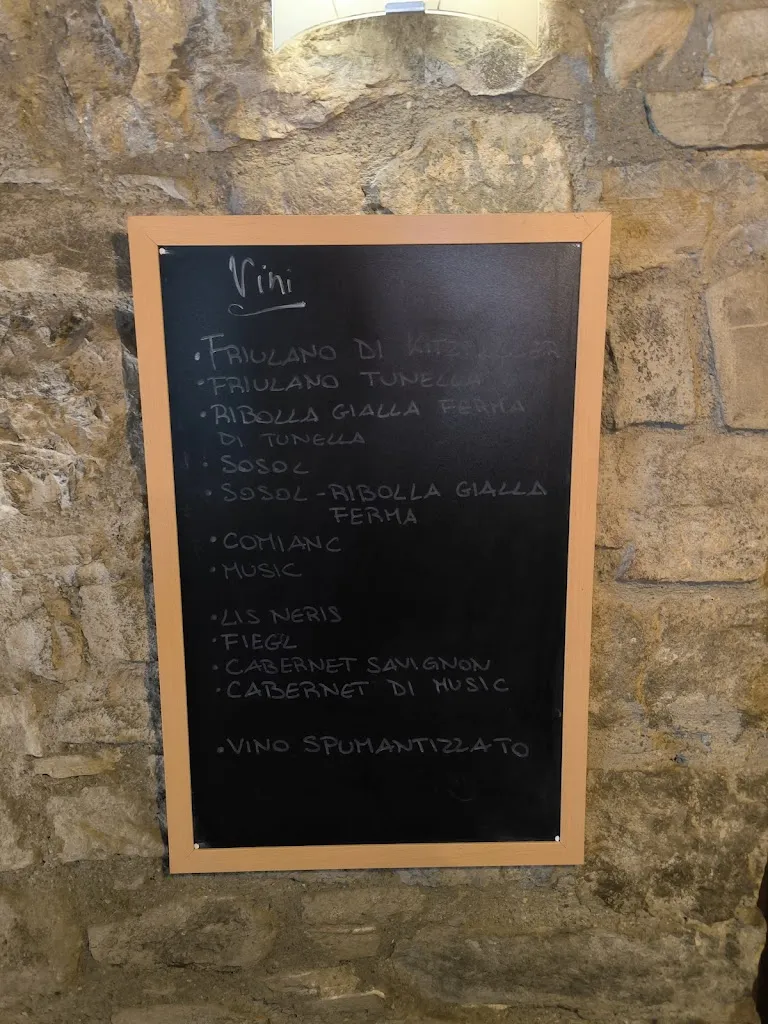 Vini
• FRIULANO DI
• FRIULANO TUNELLA
• RIBOLLA GIALLA FERMA
DI TUNELLA
• SOSOL
• SOSOL - RIBOLLA GIALLA
FERMA
• COMIANC
• MUSIC
• LIS NERIS
• FIEGL
• CABERNET SAVIGNON
• CABERNET DI MUSIC
• VINO SPUMANTIZZATO